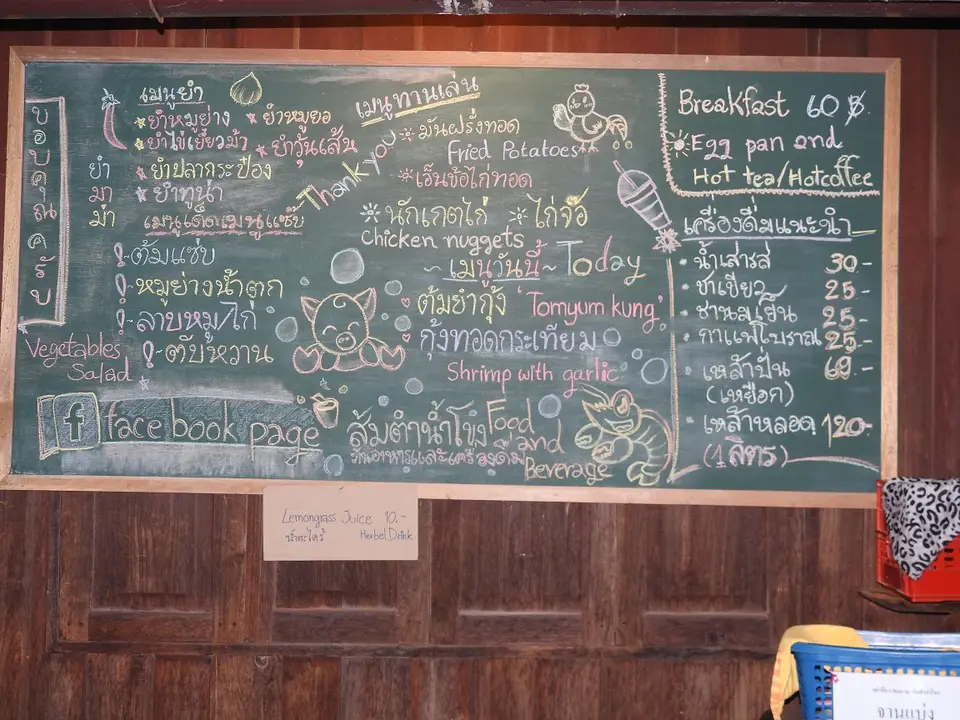 ขอบคุณครับ
เมนูยำ
ยำหมูย่าง
ยำหมูยอ
ยำไข่เยี่ยวม้า
ยำวุ้นเส้น
ยำปลากระป๋อง
ยำทูน่า
ยำ
มา
ม้า
เมนูเด็ดเมนูแซ่บ
ต้มแซ่บ
หมูย่างน้ำตก
ลาบหมู/ไก่
ตับหวาน
Vegetables
Salad
f facebook page
Thank you
เมนูทานเล่น
มันฝรั่งทอด
Fried Potatoes
เอ็นข้อไก่ทอด
นักเกตไก่
ไก่จ๊อ
chicken nuggets
~ เมนูวันนี้ ~ Today
ต้มยำกุ้ง 'Tomyum kung'
กุ้งทอดกระเทียม
Shrimp with garlic
ส้มตำน้ำโข่ง
Food
and
Beverage
Breakfast 60 ฿
Egg pan and
Hot tea/Hotcoffee
เครื่องดื่มแนะนำ
น้ำเสารส 30.-
ชาเขียว 25.-
ชานมเย็น 25.-
กาแฟโบราณ 25.-
เหล้าปั่น 69.-
(เหยือก)
เหล้าหลอด 120.-
(1 ลิตร)
Lemongrass Juice 10.-
น้ำตะไคร้ Herbel Drink
จานแบ่ง